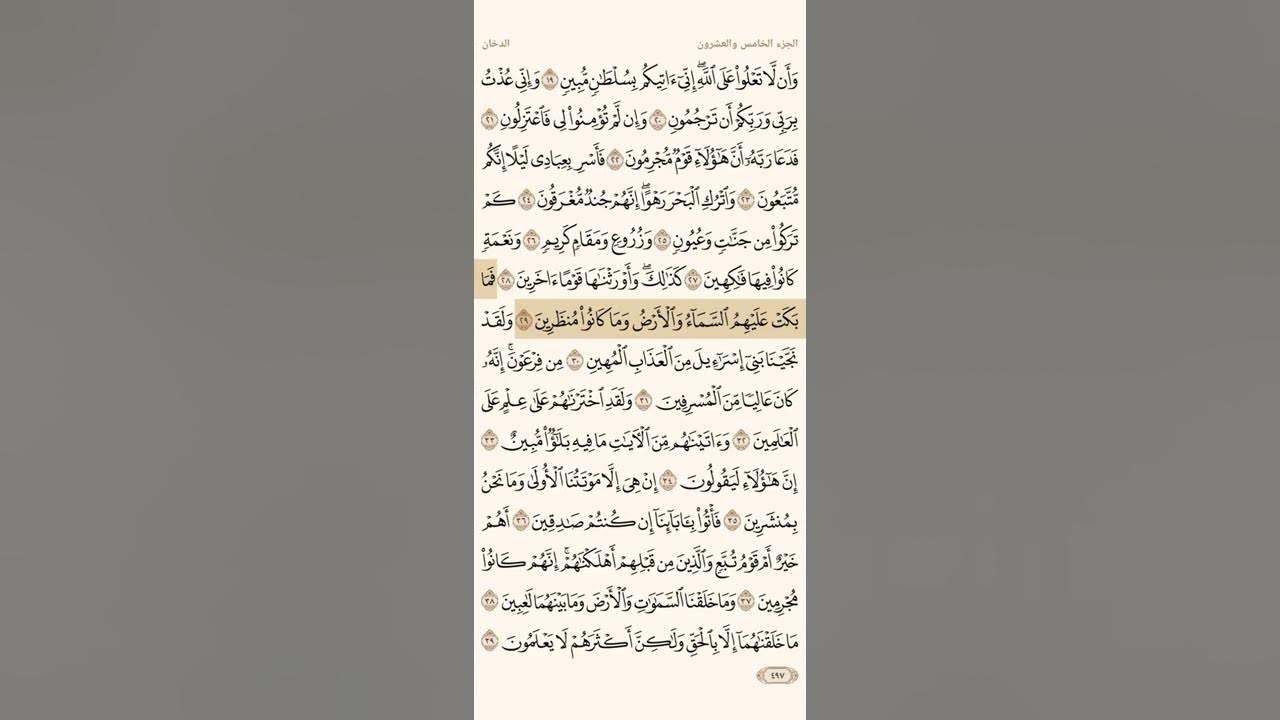 الجزء الخامس والعشرون
الدخان
وَأَن لَّا تَعْلُوا۟ عَلَى ٱللَّهِ ۖ إِنِّىٓ ءَاتِيكُم بِسُلْطَٰنٍ مُّبِينٍ ١٩ وَإِنِّى عُذْتُ
بِرَبِّى وَرَبِّكُمْ أَن تَرْجُمُونِ ٢٠ وَإِن لَّمْ تُؤْمِنُوا۟ لِى فَٱعْتَزِلُونِ ٢١
فَدَعَا رَبَّهُۥٓ أَنَّ هَٰٓؤُلَآءِ قَوْمٌ مُّجْرِمُونَ ٢٢ فَأَسْرِ بِعِبَادِى لَيْلًا إِنَّكُم
مُّتَّبَعُونَ ٢٣ وَٱتْرُكِ ٱلْبَحْرَ رَهْوًا ۖ إِنَّهُمْ جُندٌ مُّغْرَقُونَ ٢٤ كَمْ
تَرَكُوا۟ مِن جَنَّٰتٍ وَعُيُونٍ ٢٥ وَزُرُوعٍ وَمَقَامٍ كَرِيمٍ ٢٦ وَنَعْمَةٍ
كَانُوا۟ فِيهَا فَٰكِهِينَ ٢٧ كَذَٰلِكَ ۖ وَأَوْرَثْنَٰهَا قَوْمًا ءَاخَرِينَ ٢٨ فَمَا
بَكَتْ عَلَيْهِمُ ٱلسَّمَآءُ وَٱلْأَرْضُ وَمَا كَانُوا۟ مُنظَرِينَ ٢٩ وَلَقَدْ
نَجَّيْنَا بَنِىٓ إِسْرَٰٓءِيلَ مِنَ ٱلْعَذَابِ ٱلْمُهِينِ ٣٠ مِن فِرْعَوْنَ ۚ إِنَّهُۥ
كَانَ عَالِيًا مِّنَ ٱلْمُسْرِفِينَ ٣١ وَلَقَدِ ٱخْتَرْنَٰهُمْ عَلَىٰ عِلْمٍ عَلَى
ٱلْعَٰلَمِينَ ٣٢ وَءَاتَيْنَٰهُم مِّنَ ٱلْءَايَٰتِ مَا فِيهِ بَلَٰٓؤٌا۟ مُّبِينٌ ٣٣
إِنَّ هَٰٓؤُلَآءِ لَيَقُولُونَ ٣٤ إِنْ هِىَ إِلَّا مَوْتَتُنَا ٱلْأُولَىٰ وَمَا نَحْنُ
بِمُنشَرِينَ ٣٥ فَأْتُوا۟ بِـَٔابَآئِنَآ إِن كُنتُمْ صَٰدِقِينَ ٣٦ أَهُمْ
خَيْرٌ أَمْ قَوْمُ تُبَّعٍ وَٱلَّذِينَ مِن قَبْلِهِمْ ۚ أَهْلَكْنَٰهُمْ ۖ إِنَّهُمْ كَانُوا۟
مُجْرِمِينَ ٣٧ وَمَا خَلَقْنَا ٱلسَّمَٰوَٰتِ وَٱلْأَرْضَ وَمَا بَيْنَهُمَا لَٰعِبِينَ ٣٨
مَا خَلَقْنَٰهُمَآ إِلَّا بِٱلْحَقِّ وَلَٰكِنَّ أَكْثَرَهُمْ لَا يَعْلَمُونَ ٣٩
٤٩٧